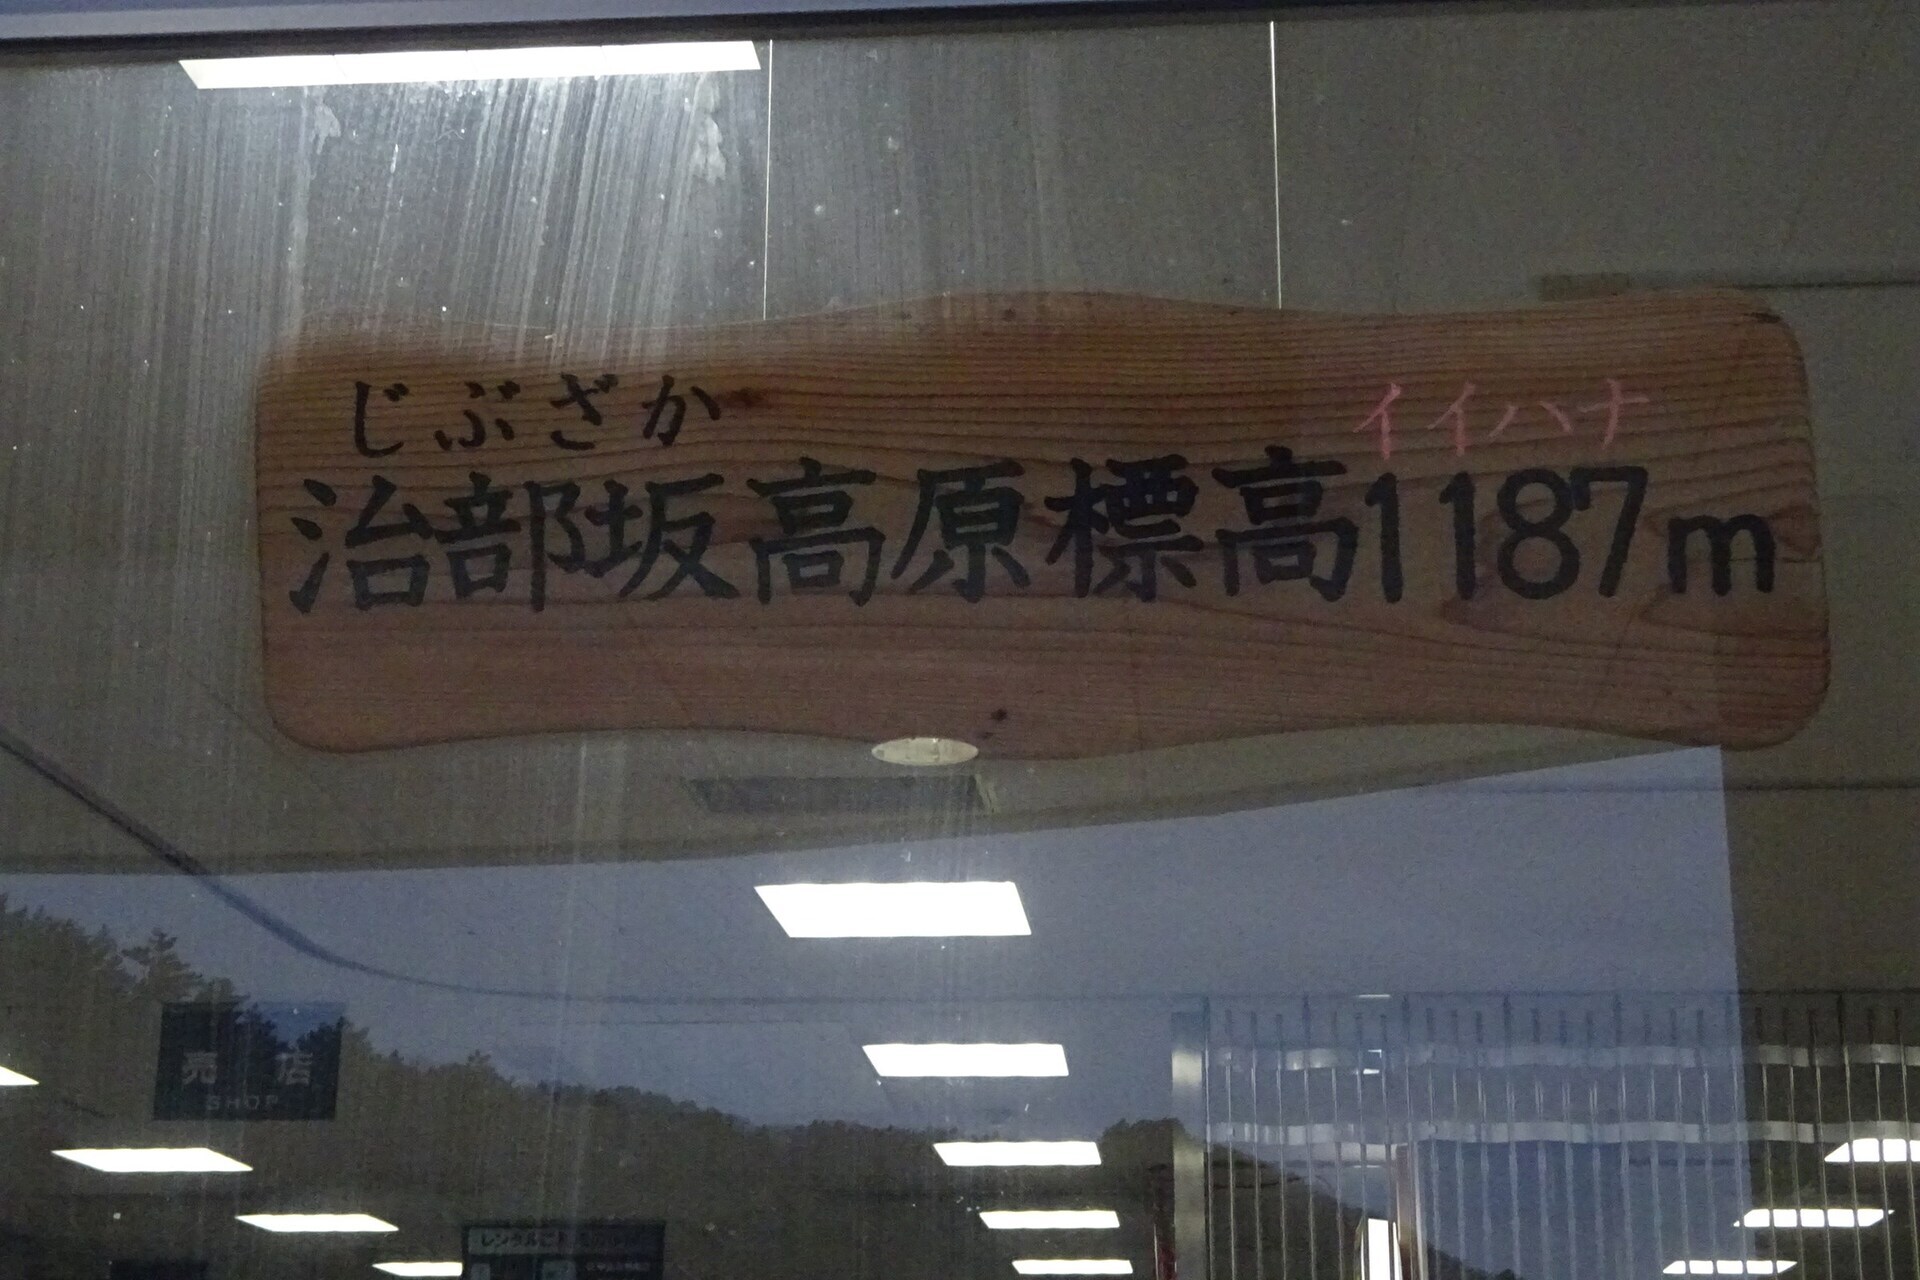 じぶざか イイハナ
治部坂高原標高1187m
売店
SHOP
レンタル